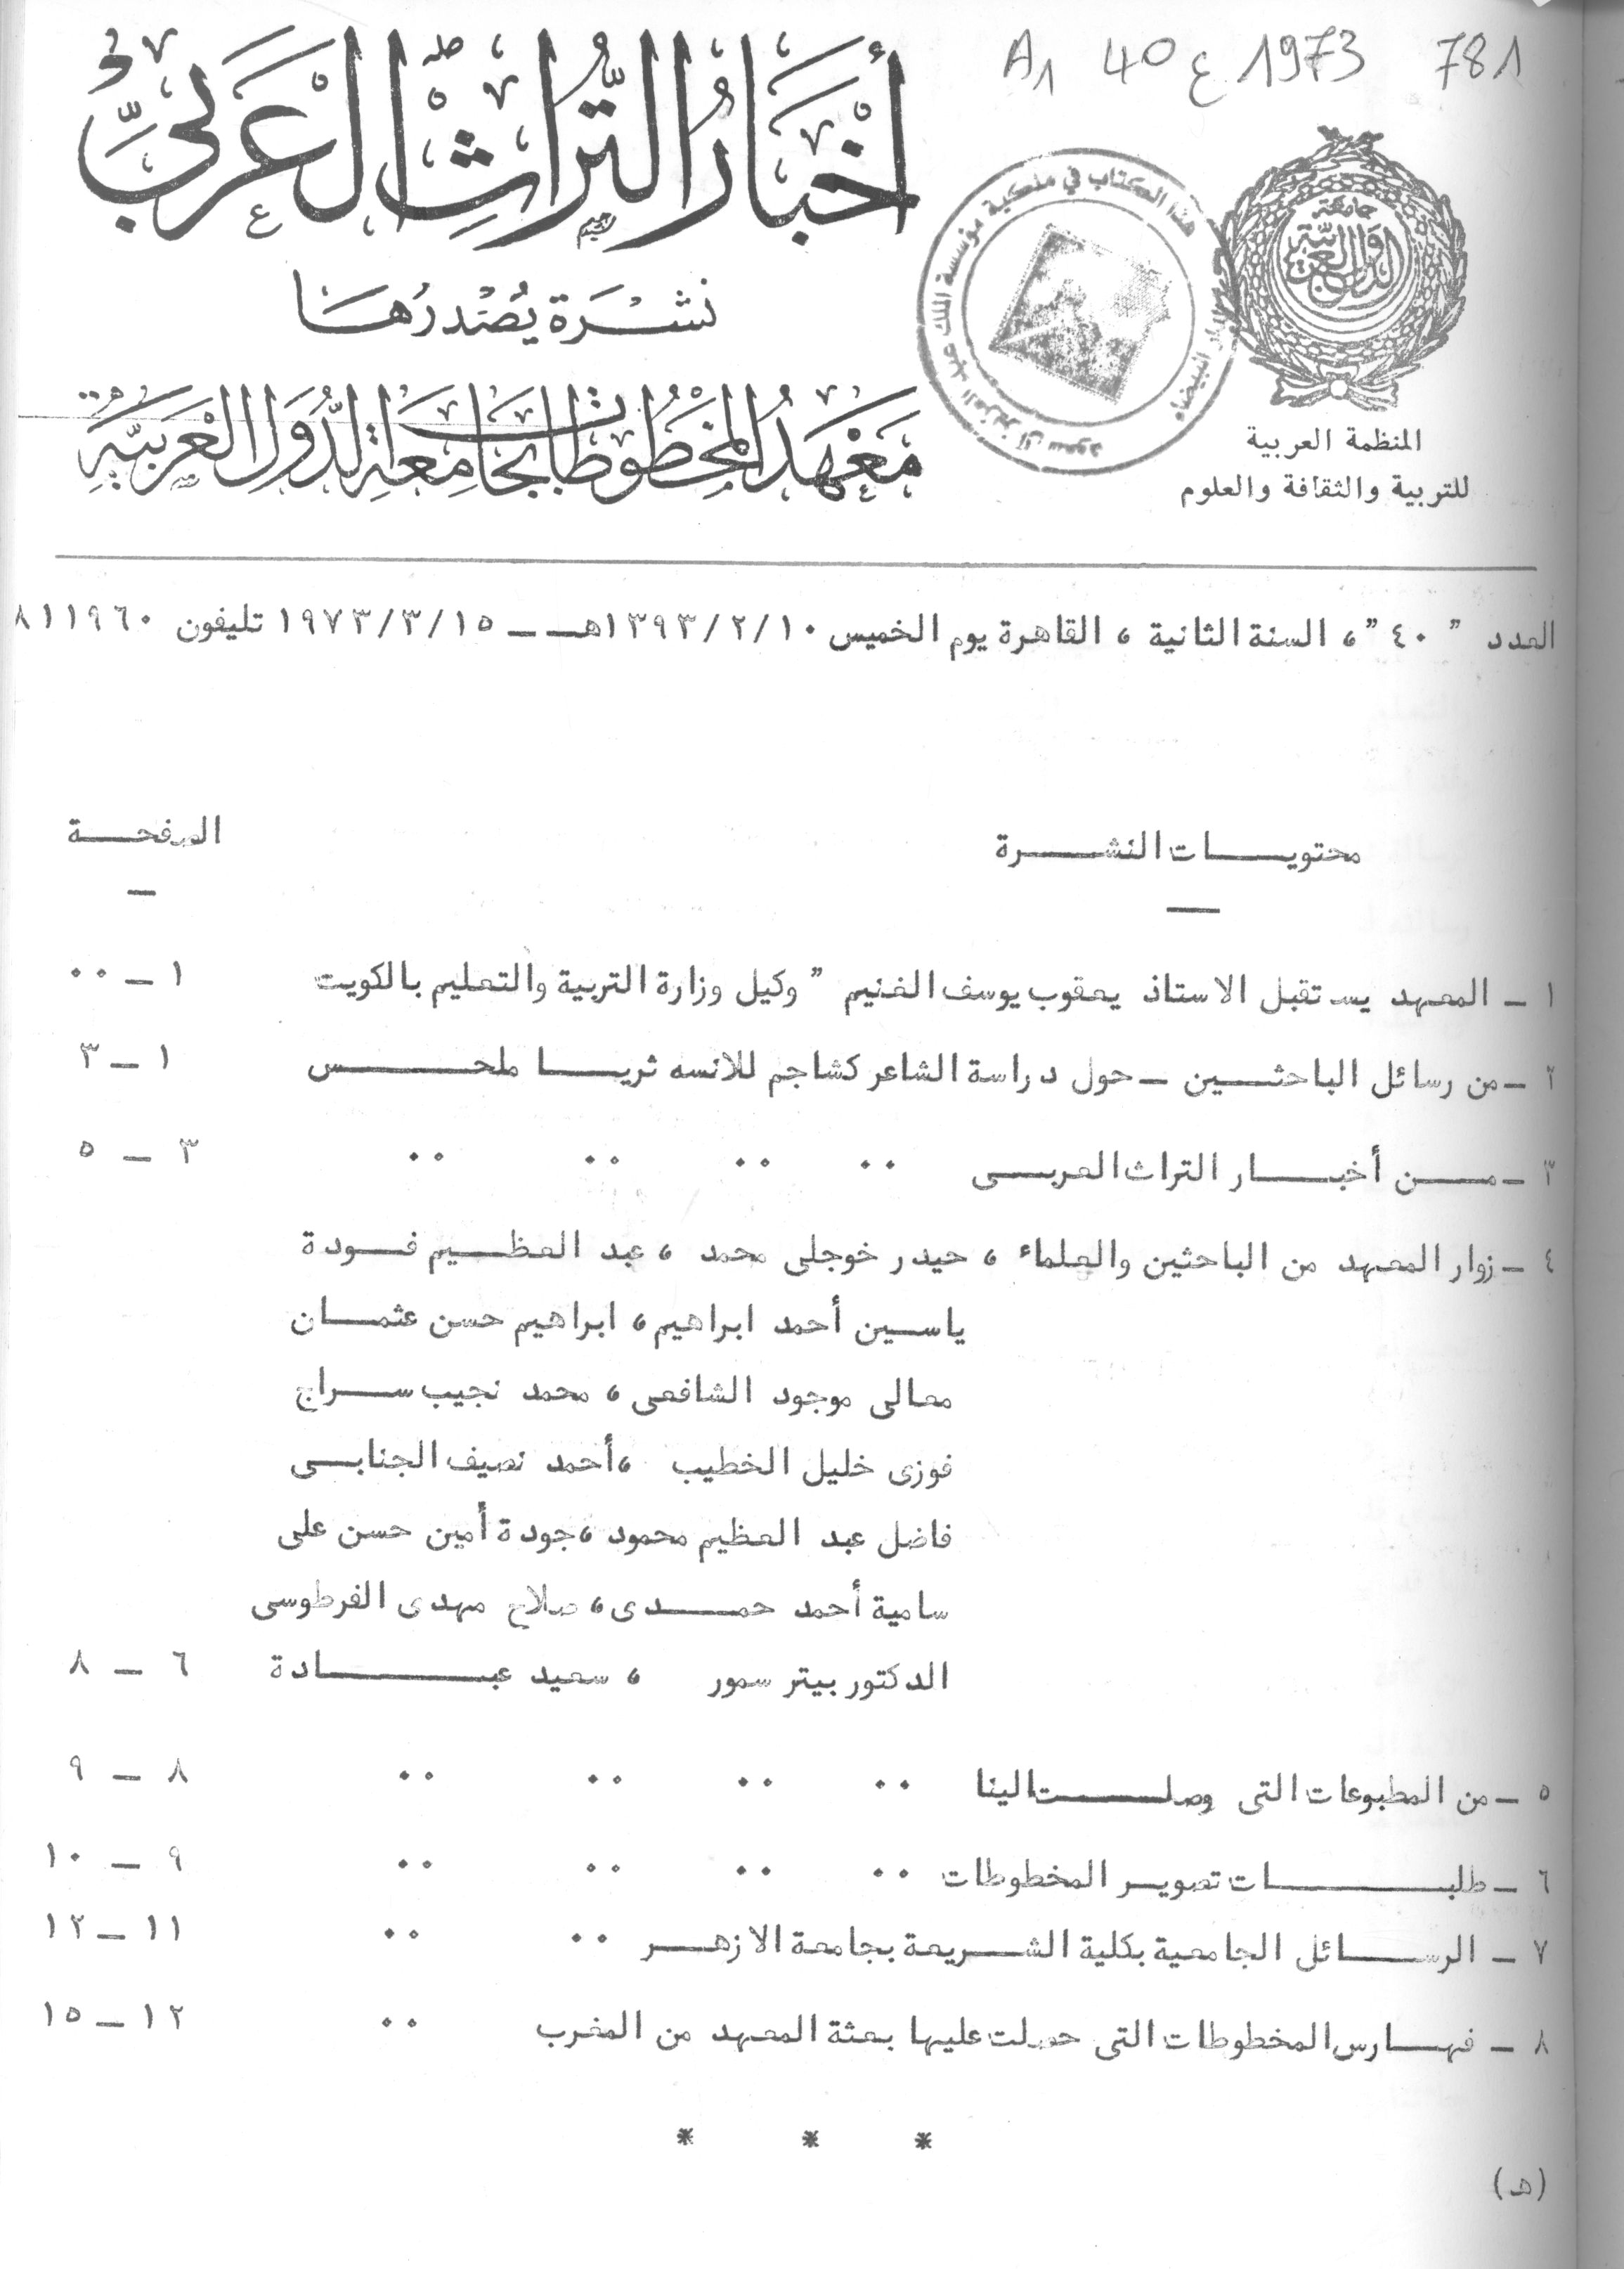 A1 40 ع 1973 781
أخبار التراث العربي
نشرة يصدرها
معهد المخطوطات بجامعة الدول العربية
جامعة
الدول العربية
هذا الكتاب في ملكية مؤسسة الملك عبد العزيز آل سعود الدار البيضاء
المنظمة العربية
للتربية والثقافة والعلوم
العدد " ٤٠ " ، السنة الثانية ، القاهرة يوم الخميس ١٣٩٣/٢/١٠هـ ــ ١٩٧٣/٣/١٥ تليفون ٨١١٩٦٠
محتويات النشرة الصفحة
١ ـ المعهد يستقبل الاستاذ يعقوب يوسف الغنيم " وكيل وزارة التربية والتعليم بالكويت ١ ـ ..
٢ ـ من رسائل الباحثين ـ حول دراسة الشاعر كشاجم للانسه ثريا ملحس ١ ـ ٣
٣ ـ من أخبار التراث العربى .. .. .. .. ٣ ـ ٥
٤ ـ زوار المعهد من الباحثين والعلماء ، حيدر خوجلى محمد ، عبد العظيم فودة
ياسين أحمد ابراهيم ، ابراهيم حسن عثمان
معالى موجود الشافعى ، محمد نجيب سراج
فوزى خليل الخطيب ، أحمد نصيف الجنابى
فاضل عبد العظيم محمود ، جودة أمين حسن على
سامية أحمد حمدى ، صلاح مهدى الفرطوسى
الدكتور بيتر سمور ، سعيد عبادة ٦ ـ ٨
٥ ـ من المطبوعات التى وصلت الينا .. .. .. .. ٨ ـ ٩
٦ ـ طلبات تصوير المخطوطات .. .. .. .. ٩ ـ ١٠
٧ ـ الرسائل الجامعية بكلية الشريعة بجامعة الازهر .. .. ١١ ـ ١٢
٨ ـ فهارس المخطوطات التى حصلت عليها بعثة المعهد من المغرب .. ١٢ ـ ١٥
* * *
(هـ)